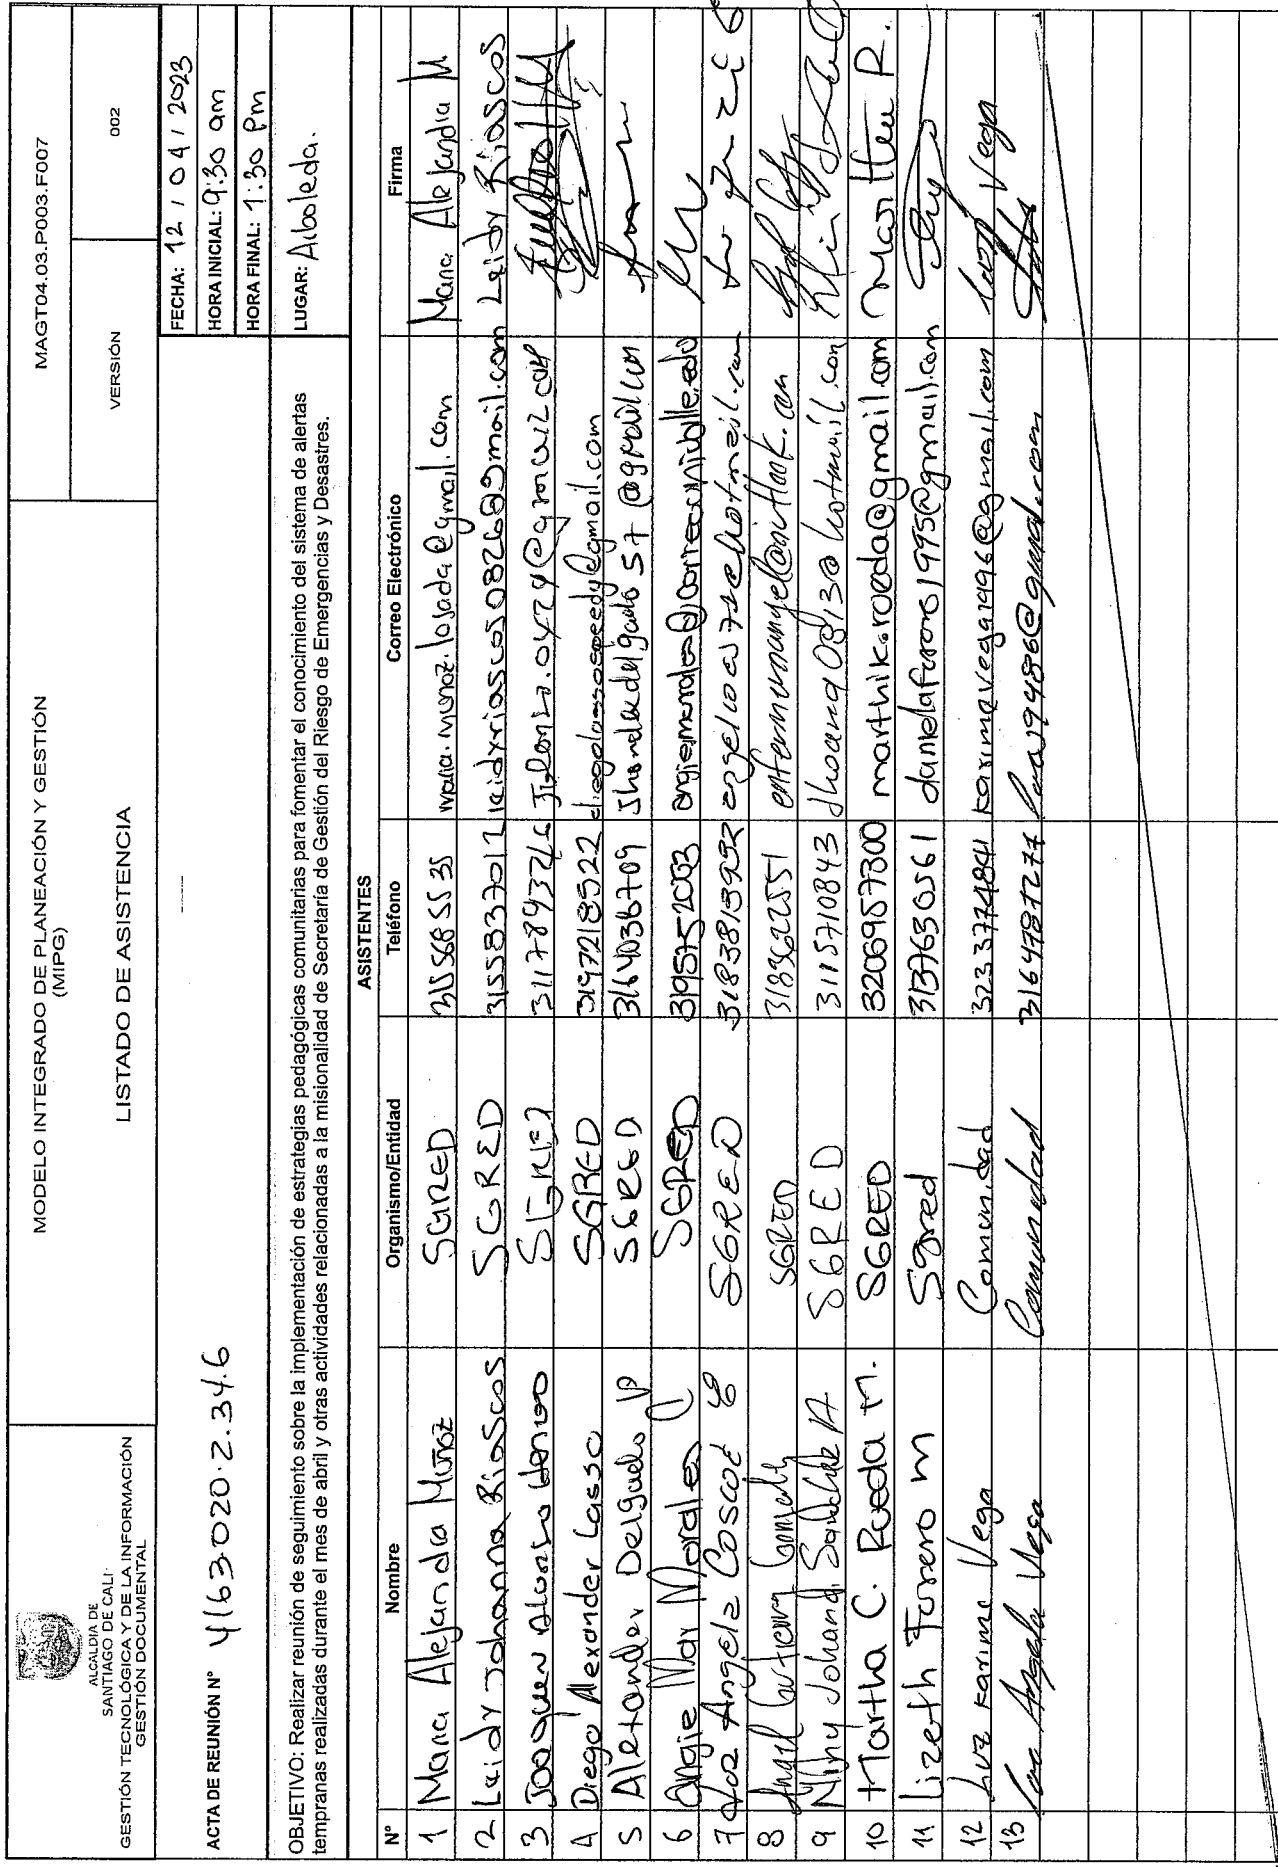 ALCALDIA DE
SANTIAGO DE CALI
GESTIÓN TECNOLÓGICA Y DE LA INFORMACIÓN
GESTIÓN DOCUMENTAL
MODELO INTEGRADO DE PLANEACIÓN Y GESTIÓN
(MIPG)
LISTADO DE ASISTENCIA
MAGT04.03.P003.F007
VERSIÓN 002
ACTA DE REUNIÓN N° 4163.020.2.34.6
FECHA: 12 / 04 / 2023
HORA INICIAL: 9:30 am
HORA FINAL: 1:30 Pm
OBJETIVO: Realizar reunión de seguimiento sobre la implementación de estrategias pedagógicas comunitarias para fomentar el conocimiento del sistema de alertas
tempranas realizadas durante el mes de abril y otras actividades relacionadas a la misionalidad de Secretaría de Gestión del Riesgo de Emergencias y Desastres.
LUGAR: Alboleda.
ASISTENTES
N° Nombre Organismo/Entidad Teléfono Correo Electrónico Firma
1 Maria Alejandra Muñoz SGRED 3156855535 maria.munoz.losada@gmail.com Maria Alejandra M
2 Leidy Johanna Riascos SGRED 3155837012 leidyriascos08268@gmail.com Leidy Riascos
3 Joaquin Alonso SGRED
4 Diego Alexander Lasso SGRED 3147218522
5 Alexander Delgado P SGRED 3164036709 Jhondelgado57@gmail.com
6 Angie Mar Morales SGRED 3195752003
7 Luz Angela Coscue SGRED 3183813932
8 Angel Gutierrez Gonzalez SGRED 3183622551
9 Niny Johana Sanchez A SGRED 3115710843 jhoana0813@hotmail.com
10 Martha C. Rueda M. SGRED 3206957300 marthik.rueda@gmail.com Martha R.
11 Lizeth Forero M Sgred 3137630561 danielaforero1995@gmail.com
12 Luz Karime Vega Comunidad 3233774841 karimevega1996@gmail.com Luz Vega
13 Ana Angela Vega Comunidad 3164787277